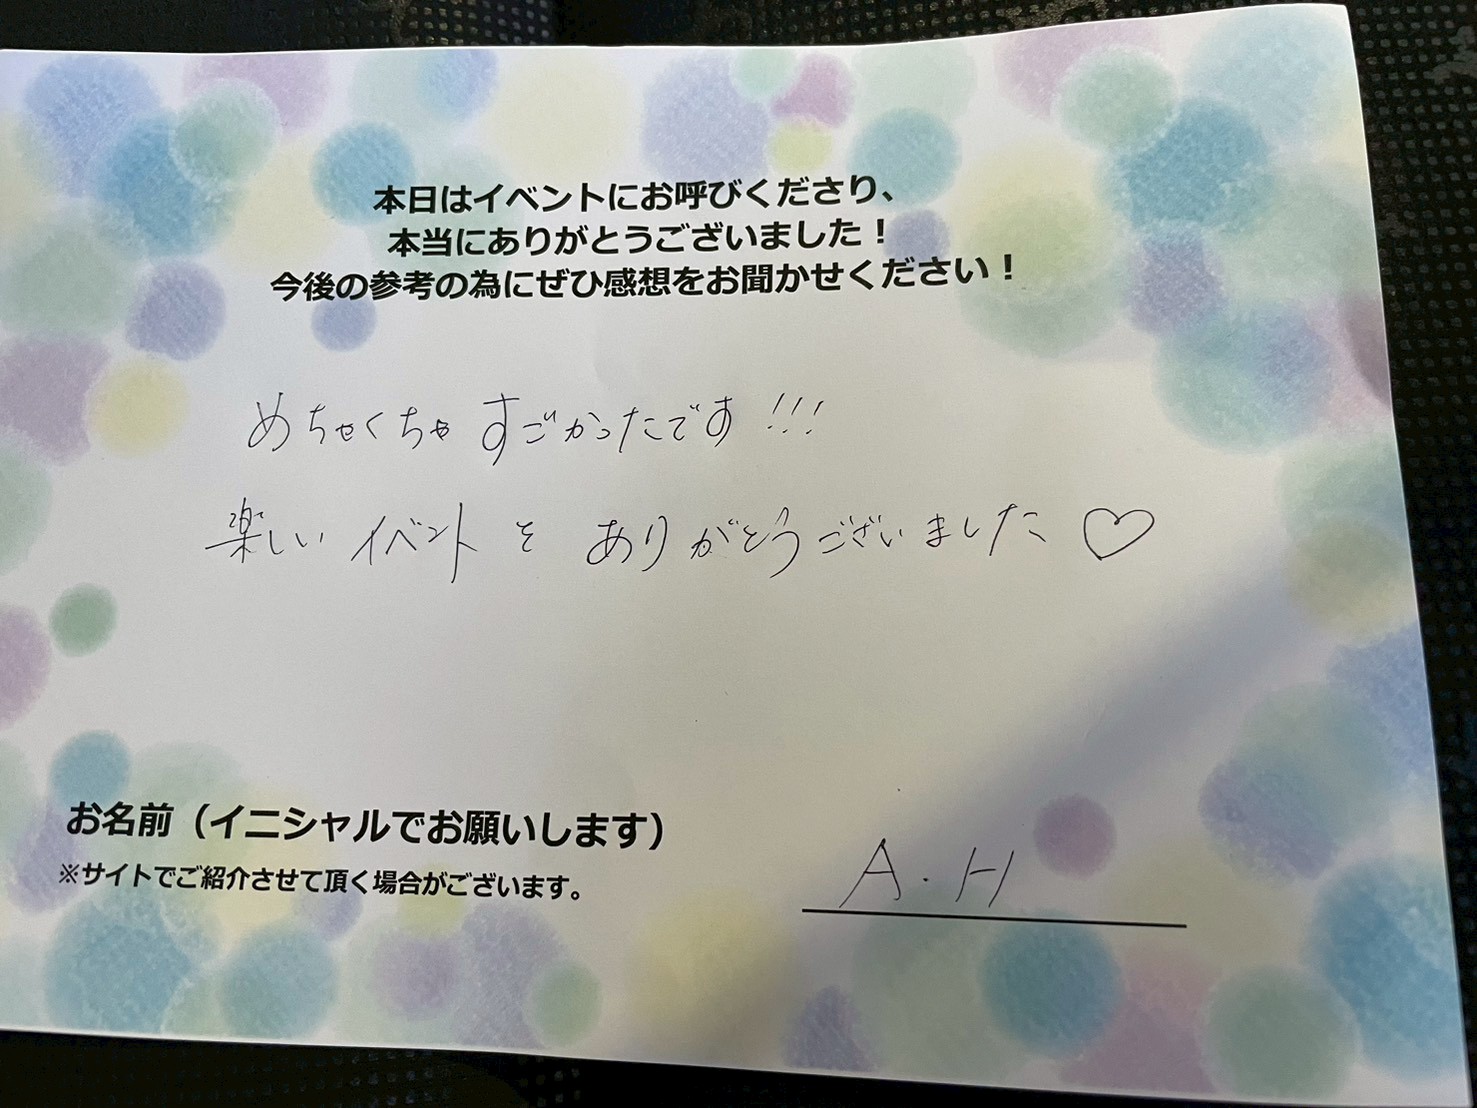 本日はイベントにお呼びくださり、
本当にありがとうございました！
今後の参考の為にぜひ感想をお聞かせください！
めちゃくちゃすごかったです!!!
楽しいイベントをありがとうございました♡
お名前（イニシャルでお願いします）
※サイトでご紹介させて頂く場合がございます。
A.H